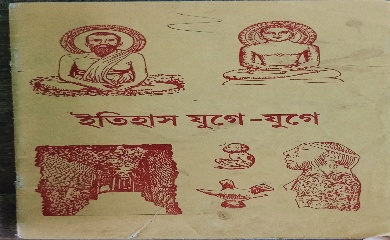 ইতিহাস যুগে-যুগে